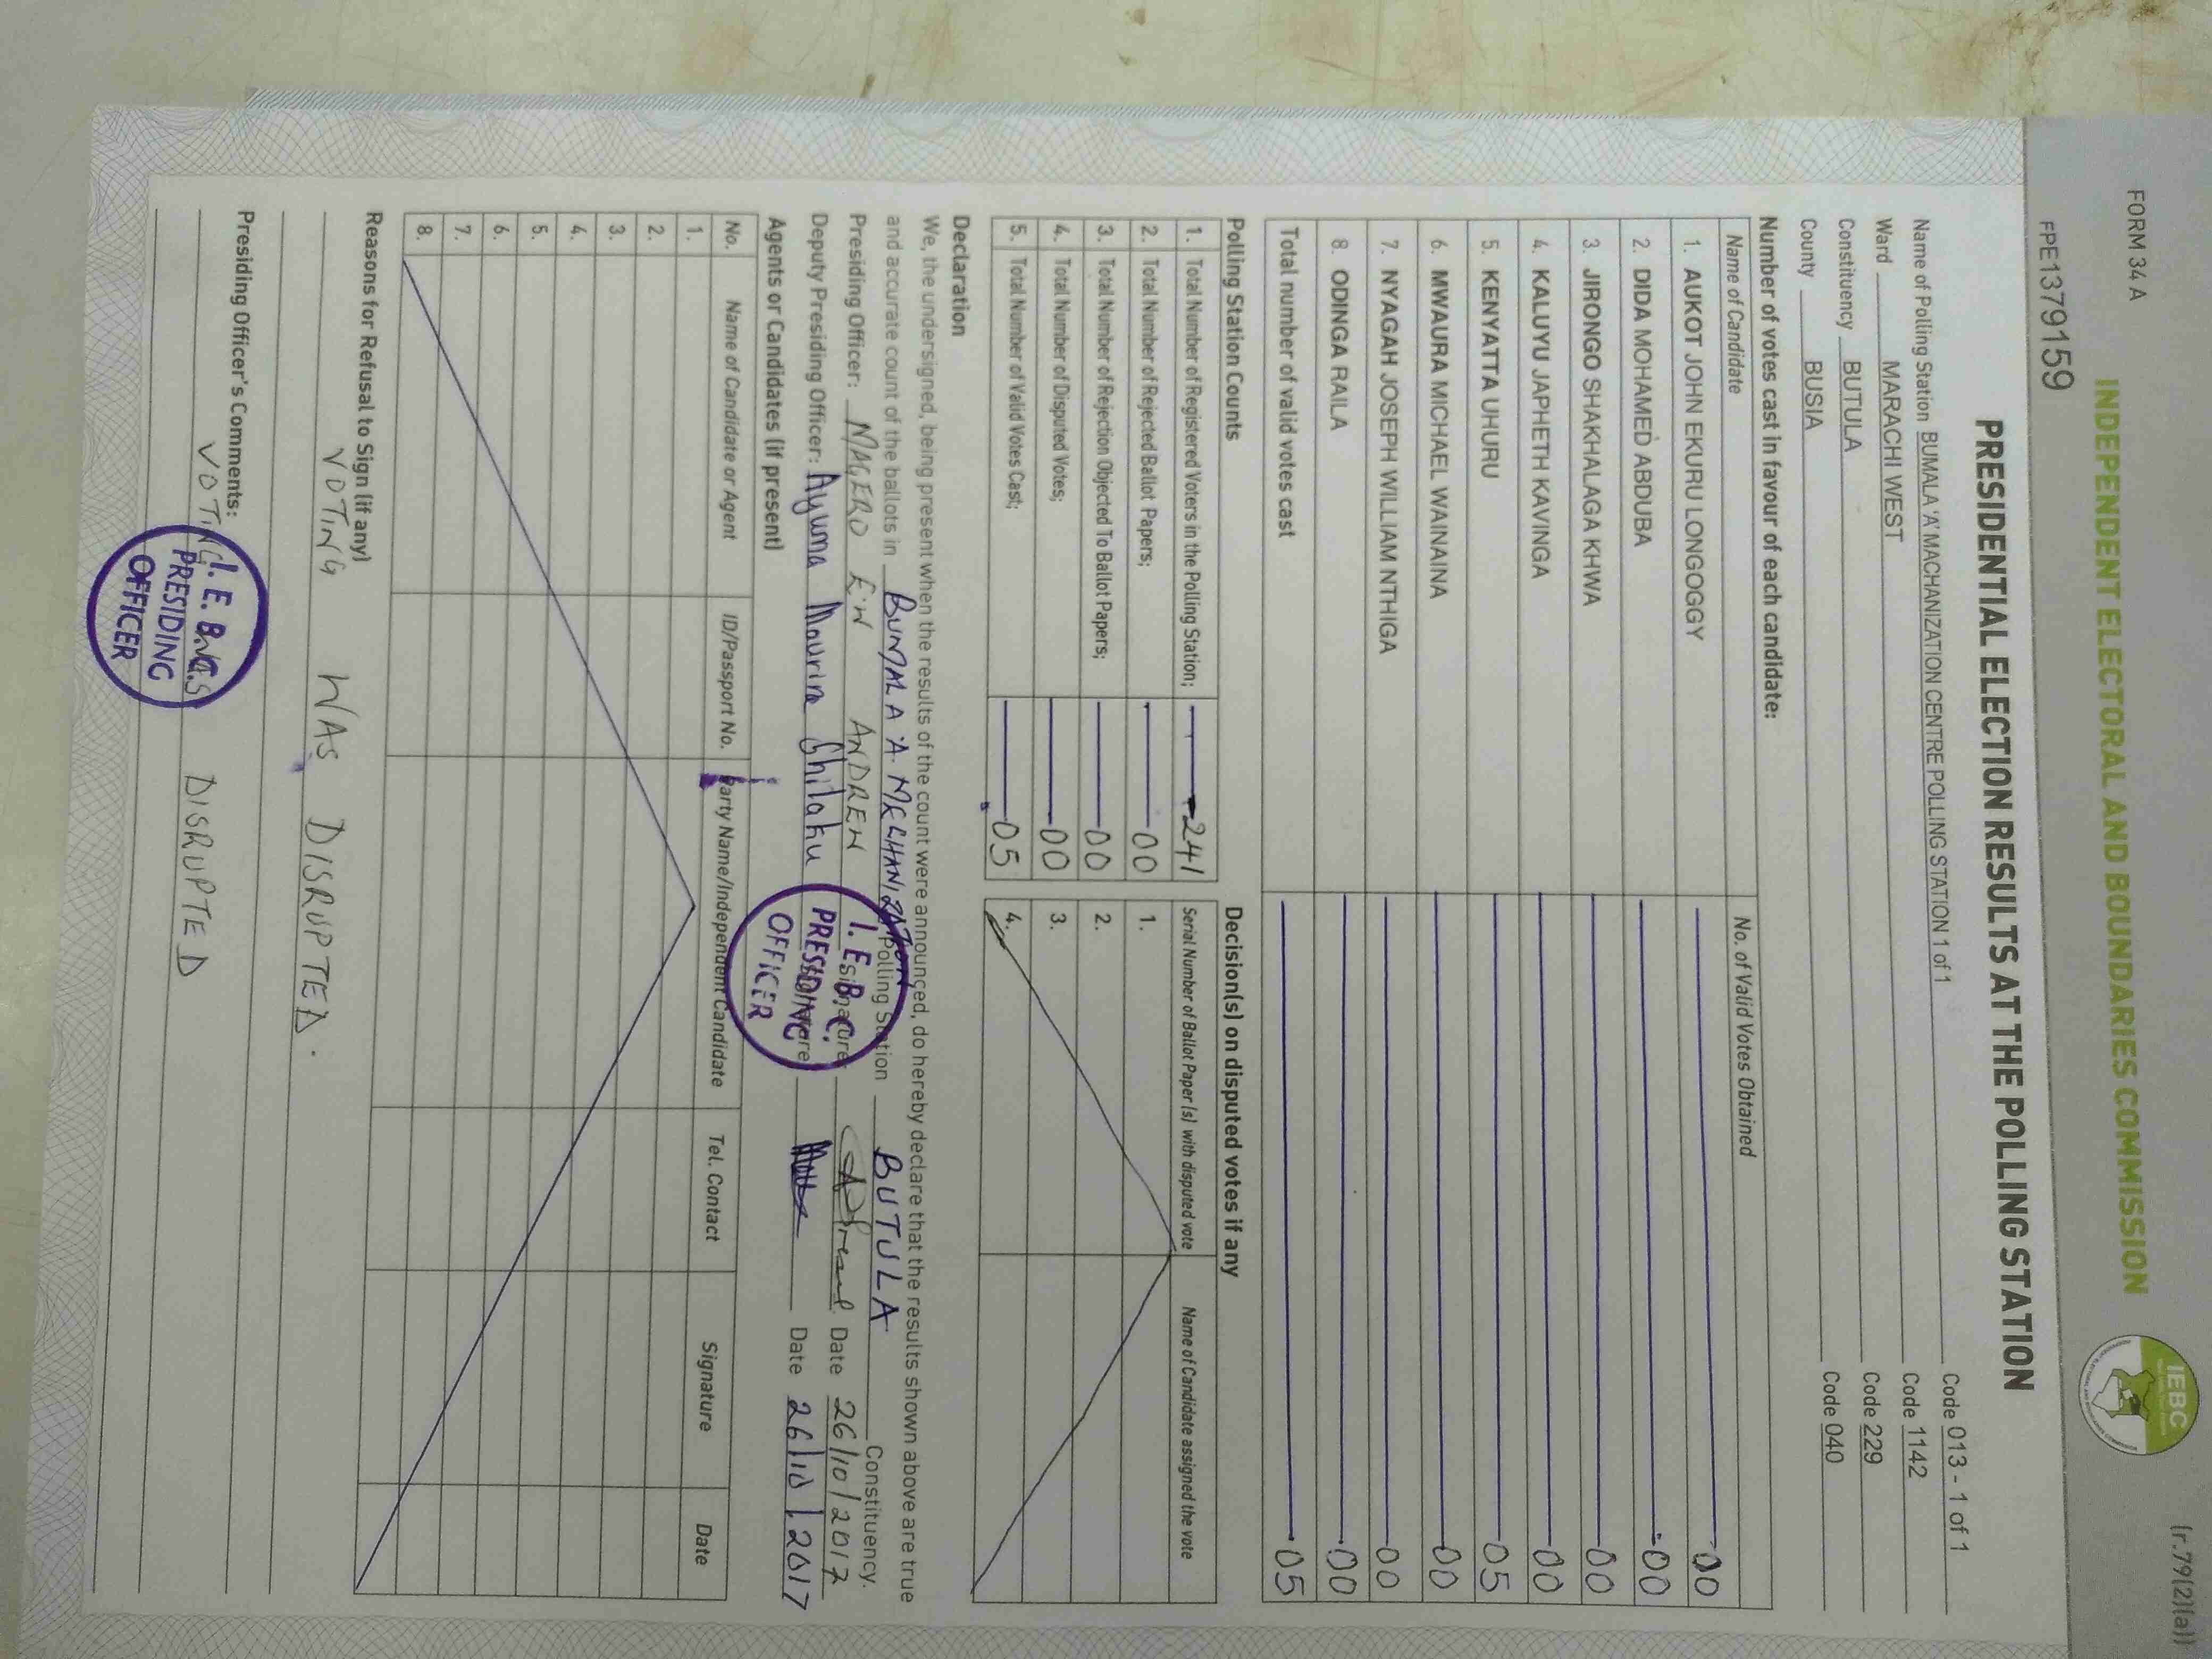 FORM 34 A
(r.79(2)(a))
INDEPENDENT ELECTORAL AND BOUNDARIES COMMISSION
IEBC
FPE1379159
PRESIDENTIAL ELECTION RESULTS AT THE POLLING STATION
Name of Polling Station BUMALA 'A' MACHANIZATION CENTRE POLLING STATION 1 of 1 Code 013 - 1 of 1
Ward MARACHI WEST Code 1142
Constituency BUTULA Code 229
County BUSIA Code 040
Number of votes cast in favour of each candidate:
Name of Candidate No. of Valid Votes Obtained
1. AUKOT JOHN EKURU LONGOGGY 00
2. DIDA MOHAMED ABDUBA 00
3. JIRONGO SHAKHALAGA KHWA 00
4. KALUYU JAPHETH KAVINGA 00
5. KENYATTA UHURU 05
6. MWAURA MICHAEL WAINAINA 00
7. NYAGAH JOSEPH WILLIAM NTHIGA 00
8. ODINGA RAILA 00
Total number of valid votes cast 05
Polling Station Counts
1. Total Number of Registered Voters in the Polling Station; 241
2. Total Number of Rejected Ballot Papers; 00
3. Total Number of Rejection Objected To Ballot Papers; 00
4. Total Number of Disputed Votes; 00
5. Total Number of Valid Votes Cast; 05
Decision(s) on disputed votes if any
Serial Number of Ballot Paper (s) with disputed vote Name of Candidate assigned the vote
1.
2.
3.
4.
Declaration
We, the undersigned, being present when the results of the count were announced, do hereby declare that the results shown above are true
and accurate count of the ballots in BUMALA 'A' MECHANIZATION Polling Station BUTULA Constituency.
Presiding Officer: MAGERO ANDREW Signature Date 26/10/2017
Deputy Presiding Officer: Ayuma Maurin Signature Date 26/10/2017
I. E. B. C.
PRESIDING
OFFICER
Agents or Candidates (if present)
No. Name of Candidate or Agent ID/Passport No. Party Name/Independent Candidate Tel. Contact Signature Date
1.
2.
3.
4.
5.
6.
7.
8.
Reasons for Refusal to Sign (if any)
VOTING WAS DISRUPTED.
Presiding Officer's Comments:
VOTING WAS DISRUPTED
I. E. B. C.
PRESIDING
OFFICER